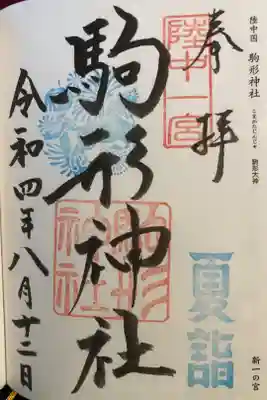 陸中国 駒形神社
こまがたじんじゃ
駒形大神
奉拝
陸中一宮
駒形神社
駒形神社
令和四年八月十二日
夏詣
新一の宮